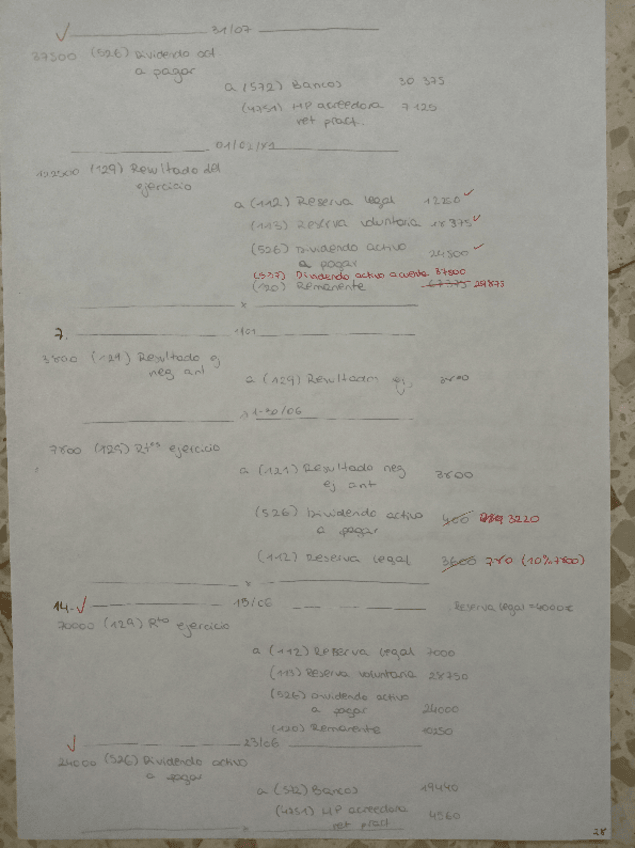 31/07
37500 (526) Dividendo act.
a pagar
a (572) Bancos 30 375
(4751) HP acreedora 7 125
ret pract.
(129) Resultado del
ejercicio
a (112) Reserva legal 12250
(113) Reserva voluntaria 18375
(526) Dividendo activo 24500
a pagar
(557) Dividendo activo a cuenta 37500
(120) Remanente 67375 29875
x
7. 1/01
3800 (121) Resultado ej
neg ant
a (129) Resultado ej. 3800
30/06
7800 (129) Rtos ejercicio
a (121) Resultado neg 3800
ej ant
(526) Dividendo activo 400 3220
a pagar
(112) Reserva legal 3600 780 (10% 7800)
x
14. 15/06 Reserva legal = 4000€
70000 (129) Rto ejercicio
a (112) Reserva legal 7000
(113) Reserva voluntaria 28750
(526) Dividendo activo
a pagar 24000
(120) Remanente 10250
23/06
24000 (526) Dividendo activo
a pagar
a (572) Bancos 19440
(4751) HP acreedora 4560
ret pract
x
28